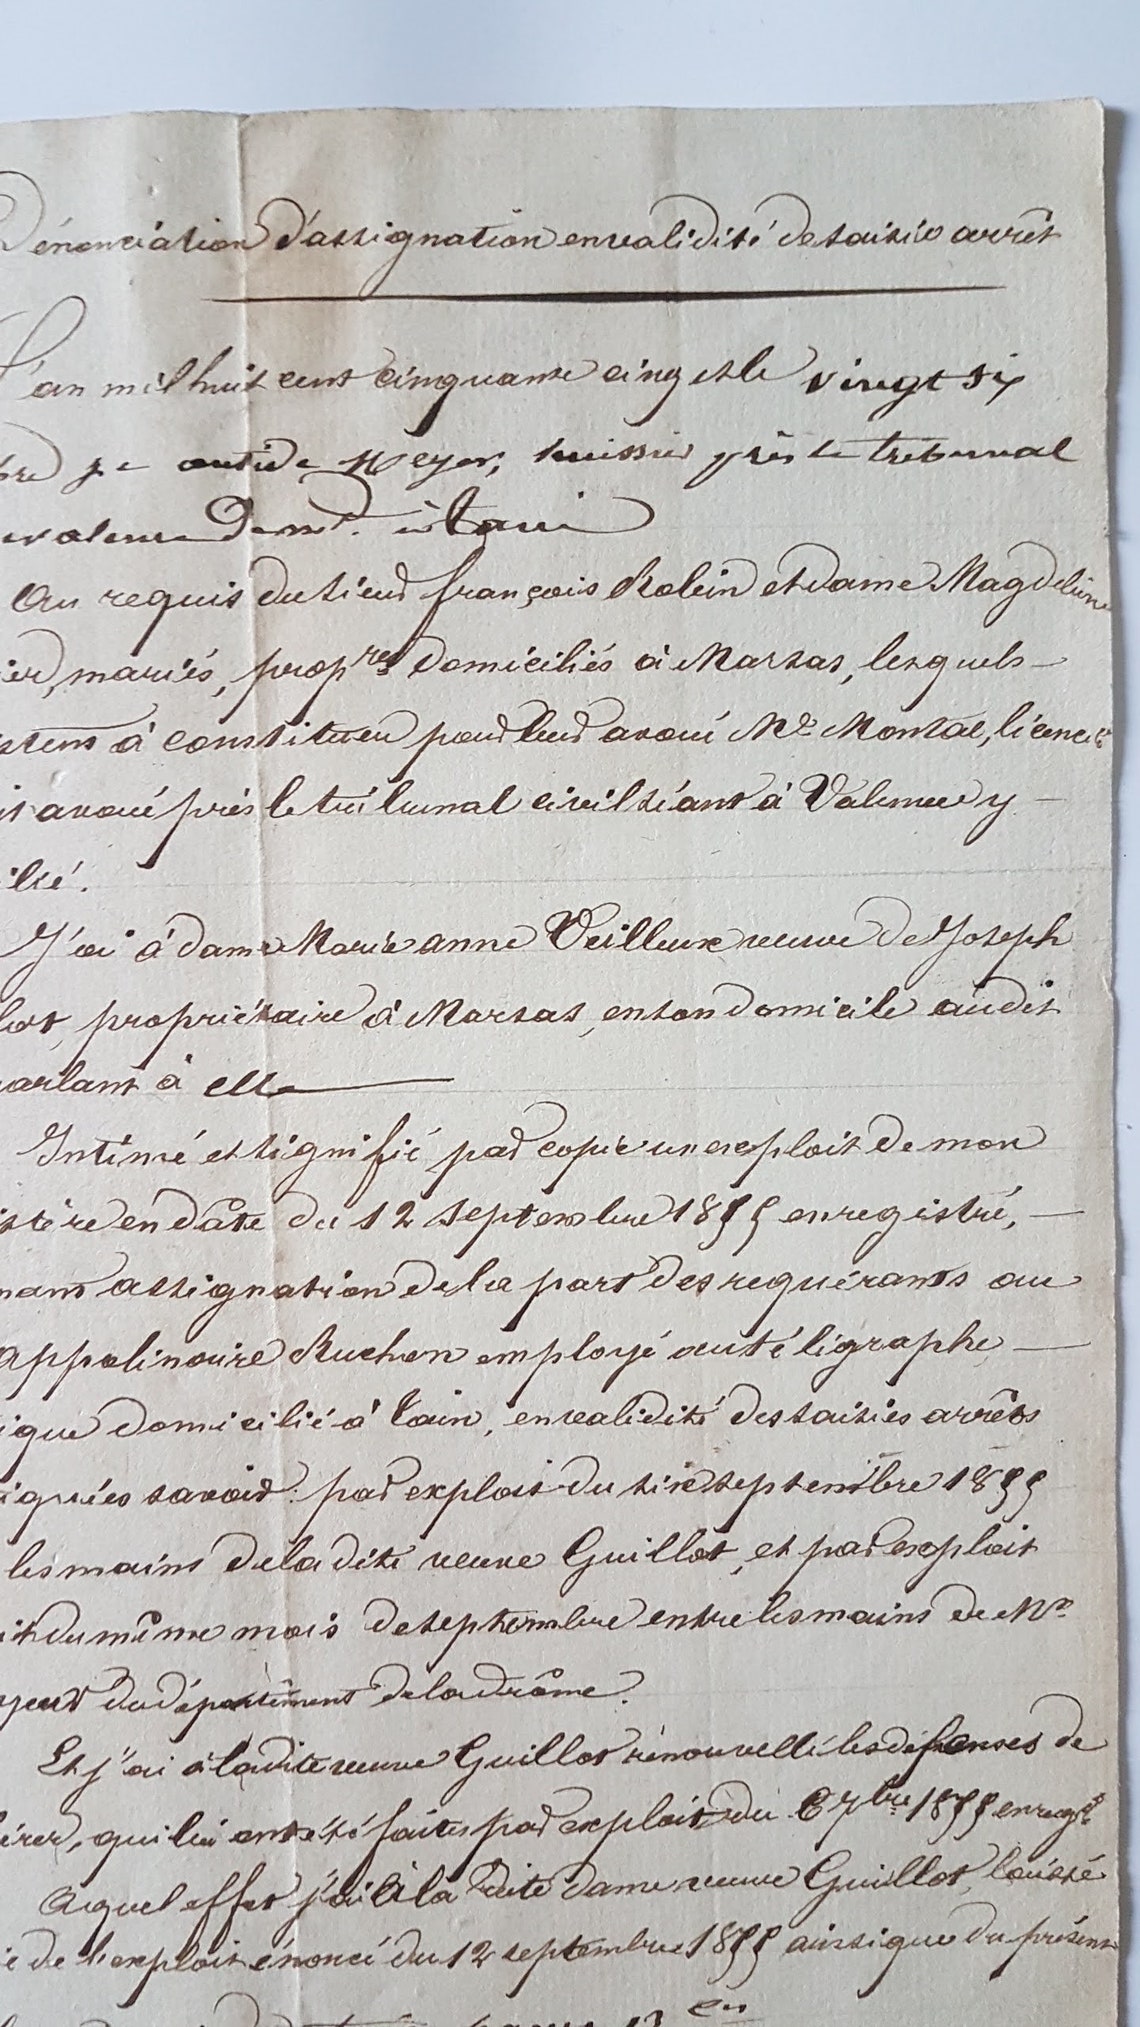 Dénonciation d'assignation en validité de saisie arrêt
L'an mil huit cent cinquante cinq et le vingt six
bre je Meyer, huissier près le tribunal
valence à tain
Au requis du sieur françois Robin et dame Magdeleine
ier, mariés, prop.res domiciliés à Marsas, lesquels
istent à constituer pour leur avoué Me Montal, licencié
it avoué près le tribunal civil séant à Valence y
ilié.
J'ai à dame Marie anne Veilleux veuve de Joseph
lot, propriétaire à Marsas, en son domicile audit
parlant à elle
Intimé et signifié par copie un exploit de mon
istère en date du 12 septembre 1855 enregistré,
nant assignation de la part des requérants au
Appolinaire Ruchon employé au téligraphe
ique domicilié à tain, en validité des saisies arrêts
iquées savoir : par exploit du six septembre 1855
les mains de la dite veuve Guillot, et par exploit
it du même mois de septembre entre les mains de Mr
ayeur du département de la drôme.
Et j'ai à la dite veuve Guillot rénouvellé les défenses de
érer, qui lui ont été faites par exploit du 6 7bre 1855 enregé
Auquel effet j'ai à la dite dame veuve Guillot, laissé
ie de l'exploit énoncé du 12 septembre 1855 ainsi que du présent